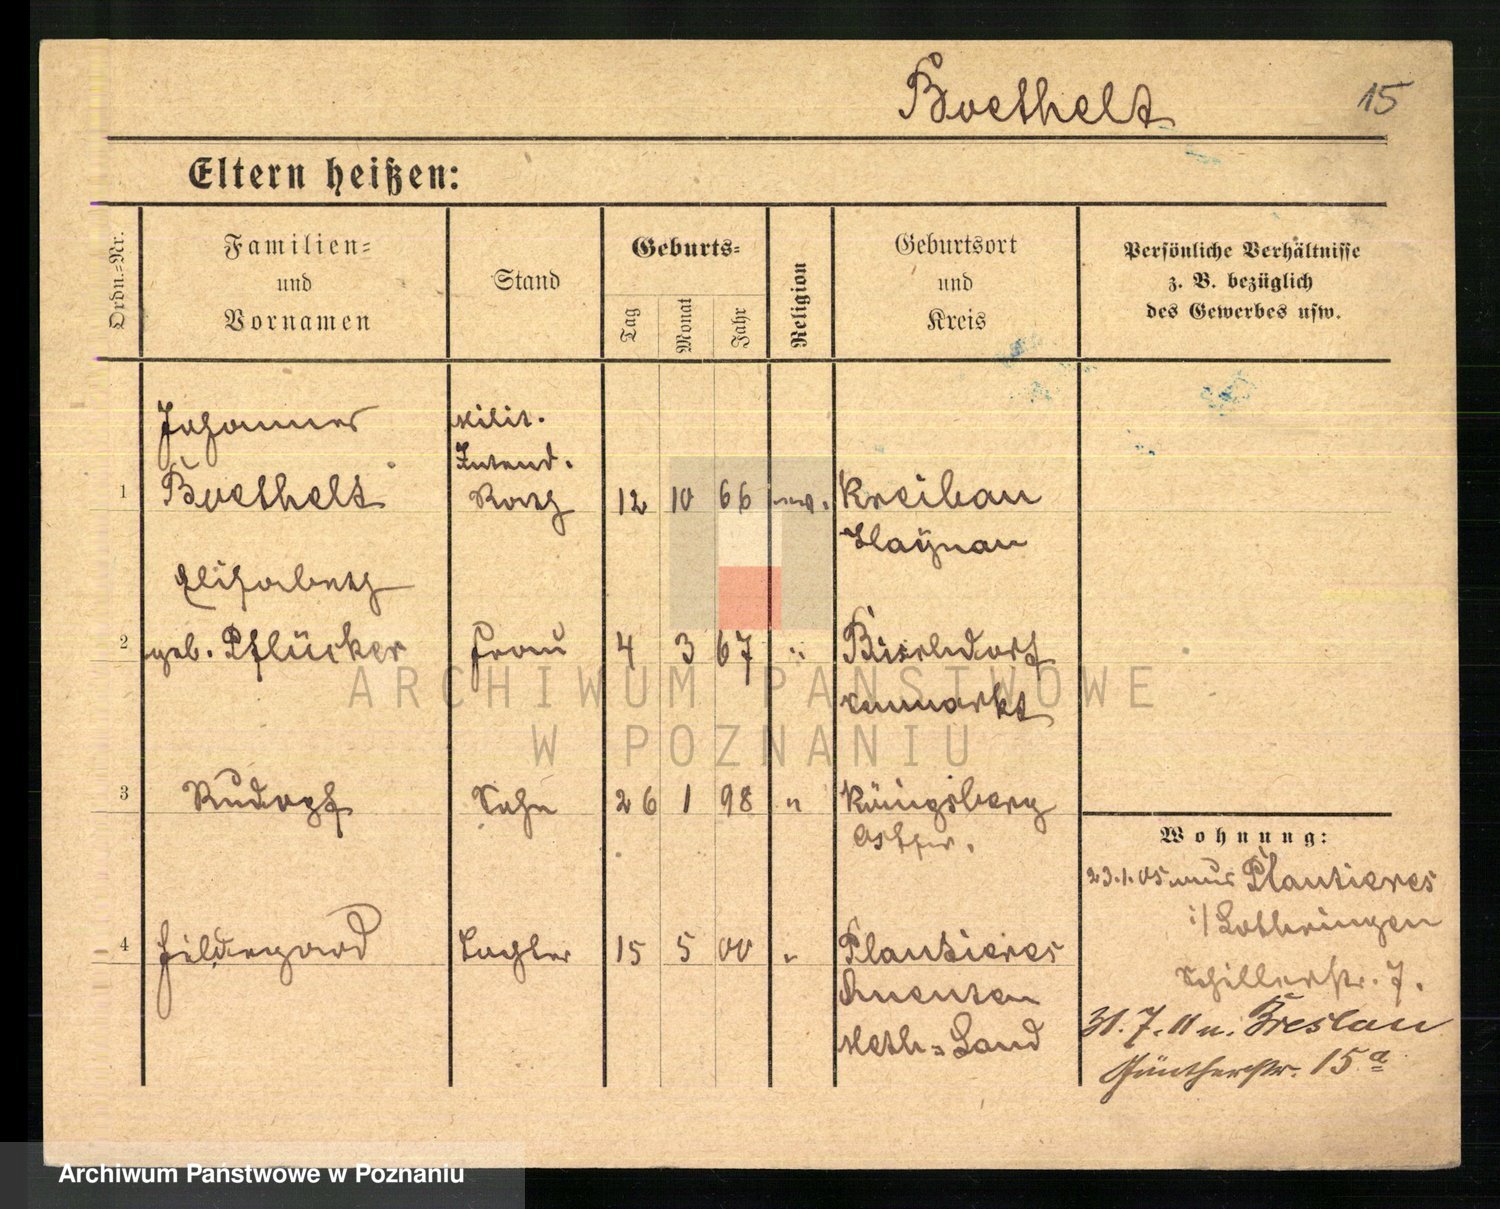 Boethelt 15
Eltern heißen:
Ordn.=Nr.
Familien=
und
Vornamen
Stand
Geburts=
Tag
Monat
Jahr
Religion
Geburtsort
und
Kreis
Persönliche Verhältnisse
z. B. bezüglich
des Gewerbes usw.
Johannes Milit.
Intend.
1 Boethelt Rath 12 10 66 Kreibau
Haÿnau
Elisabeth
2 geb. Pflücker Frau 4 3 67 "
Neumarkt
3 Rudolf Sohn 26 1 98 " Königsberg
Ostpr.
Wohnung:
23.1.05 aus Plantieres
i/Lothringen
Schillerstr. 7.
31. 7. 11 n. Breslau
Güntherstr. 15a
4 Hildegard Tochter 15 5 00 " Plantieres
Queuleu
Metz=Land
ARCHIWUM PAŃSTWOWE
W POZNANIU
Archiwum Państwowe w Poznaniu